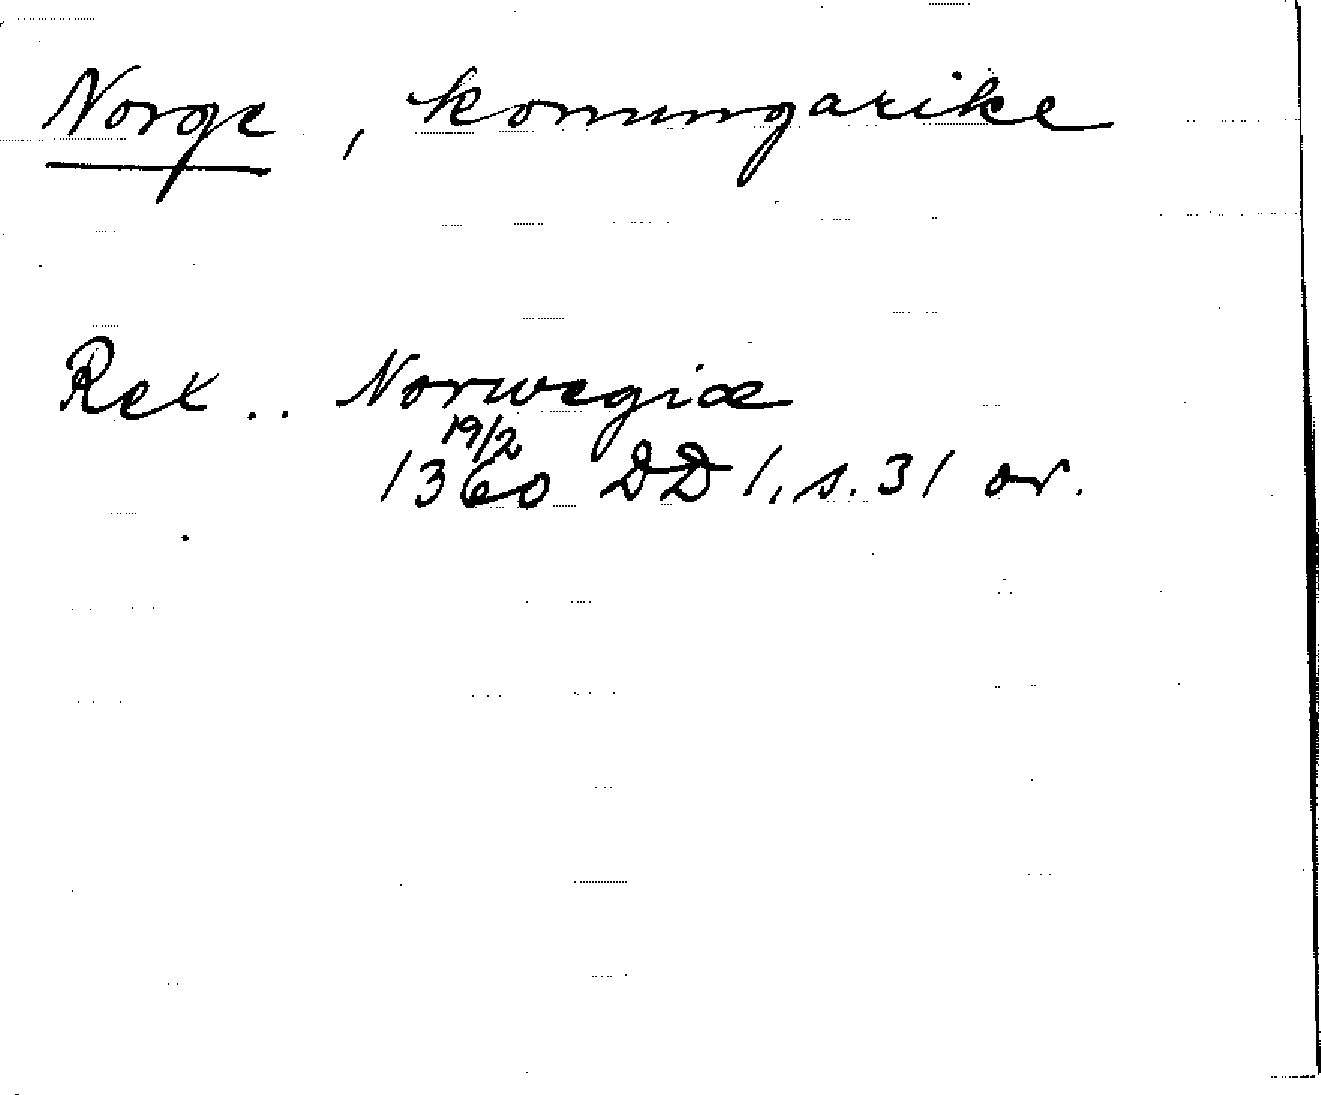 Norge, konungarike
Rex .. Norwegiæ
19/2
1360 DD 1, s. 31 or.